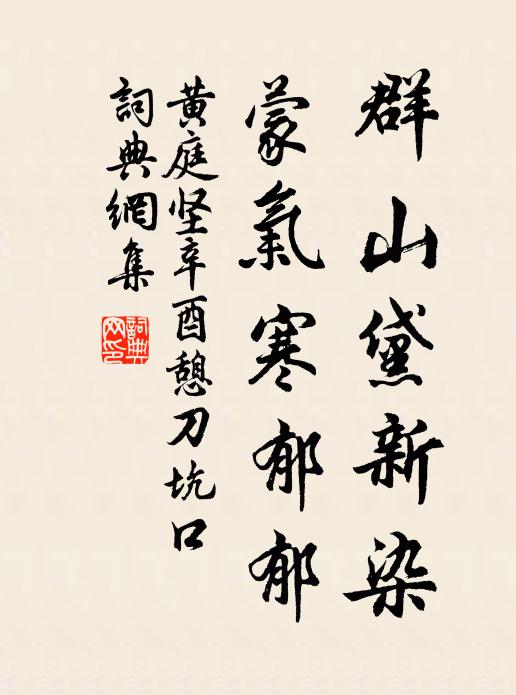 群山黛新染
蒙氣寒郁郁
黄庭坚辛酉憩刀坑口
詞典網集
詞典網印